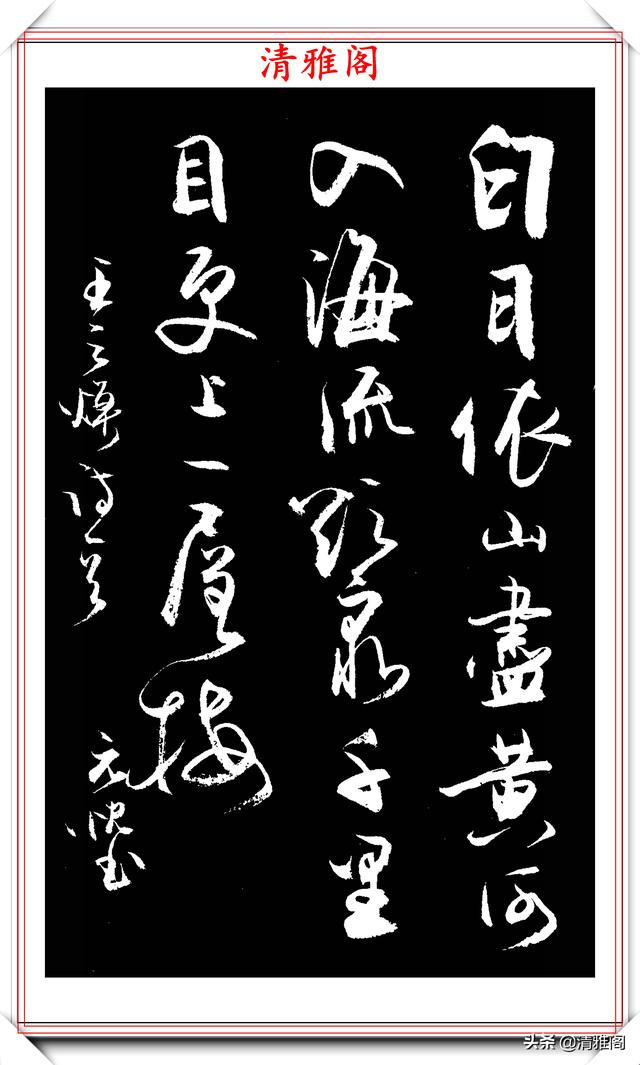 清雅阁
白日依山盡黃河
入海流欲窮千里
目更上一層樓
王之渙詩一首
头条 @清雅阁